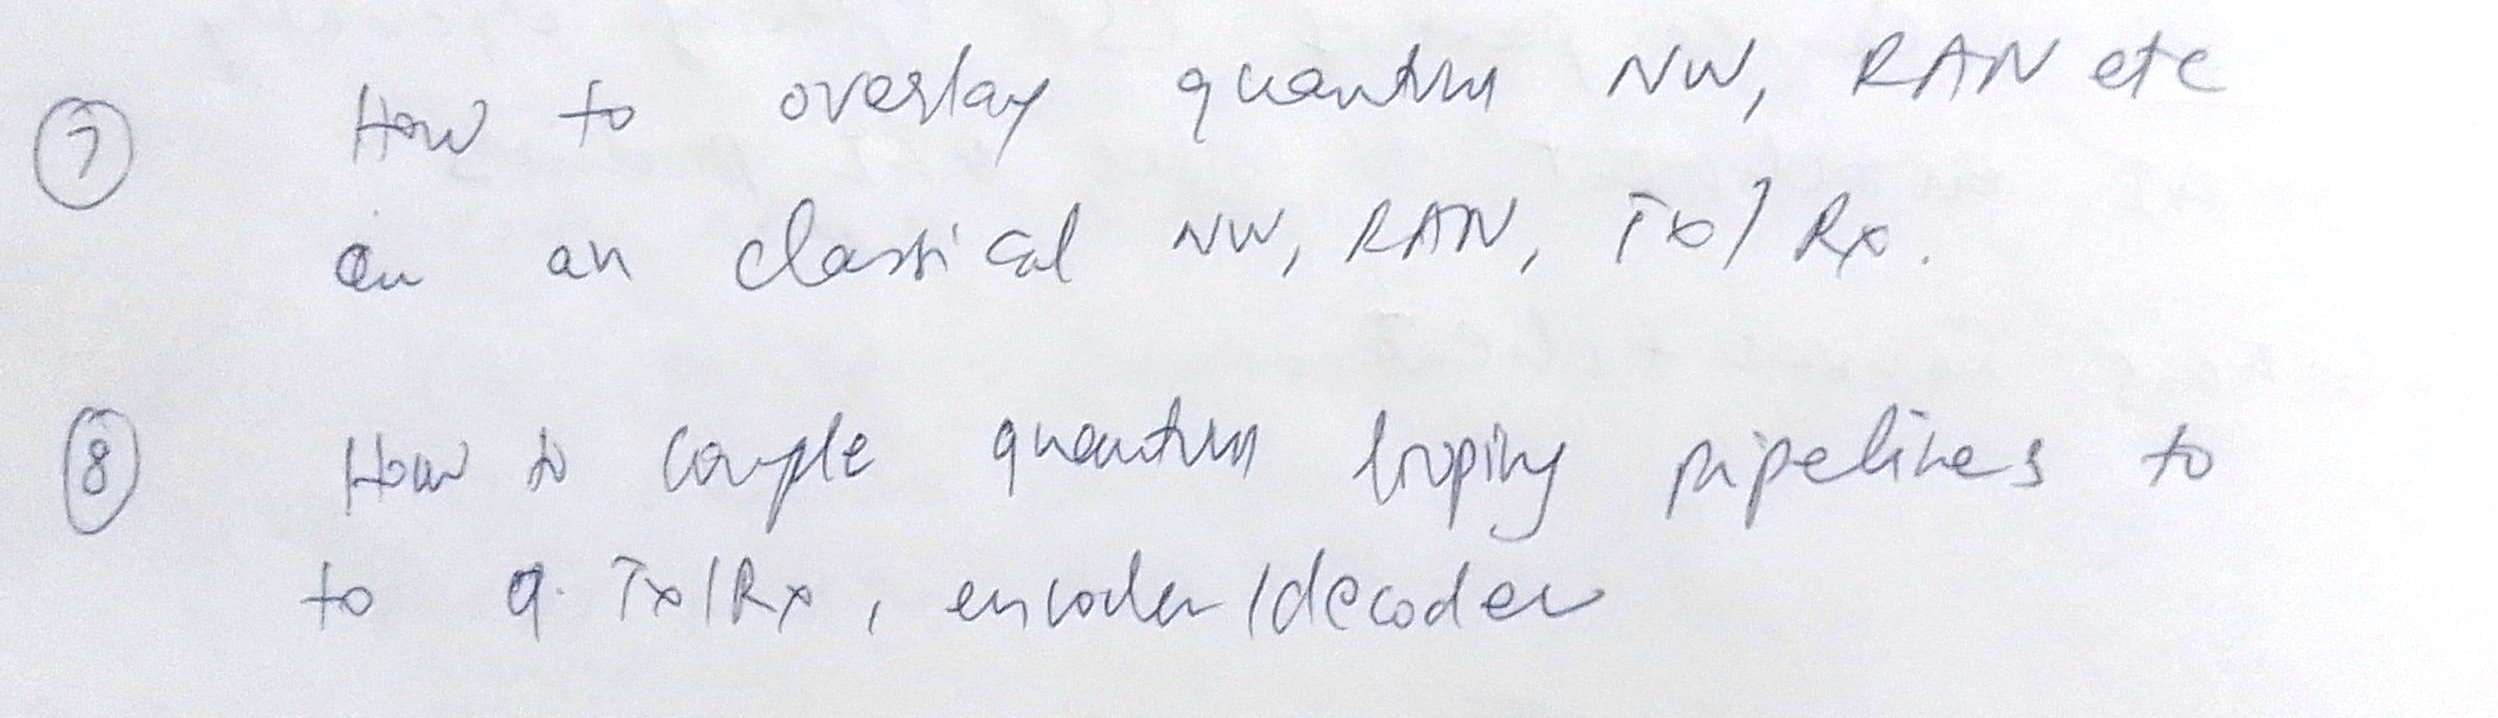 ⑦ How to overlay quantum NW, RAN etc
on an classical NW, RAN, Tx/Rx.
⑧ How to couple quantum looping pipelines to
to q. Tx/Rx, encoder/decoder